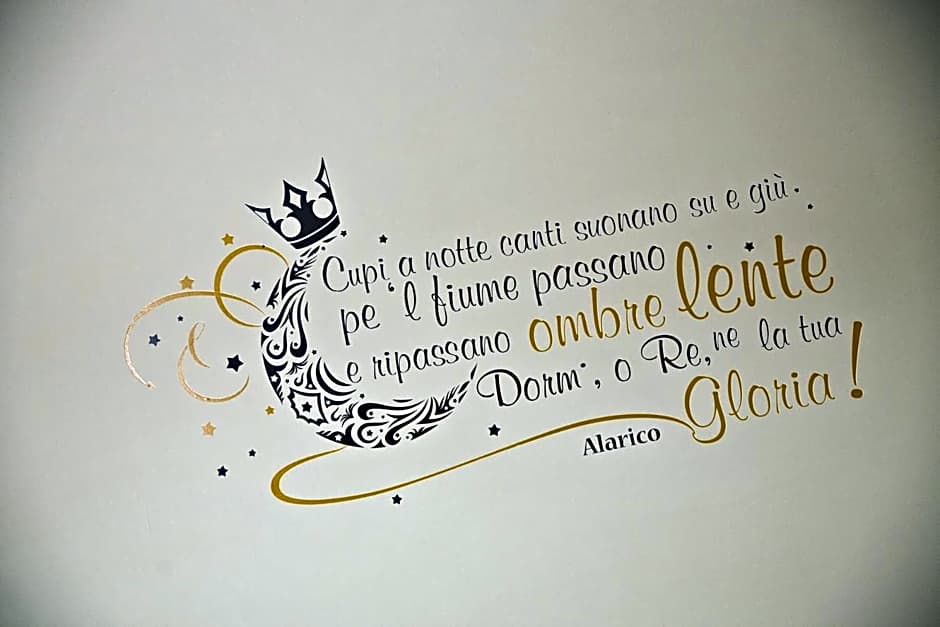 Cupi a notte canti suonano su e giù.
pe 'l fiume passano
e ripassano ombre lente
Dorm', o Re, ne la tua
Gloria!
Alarico